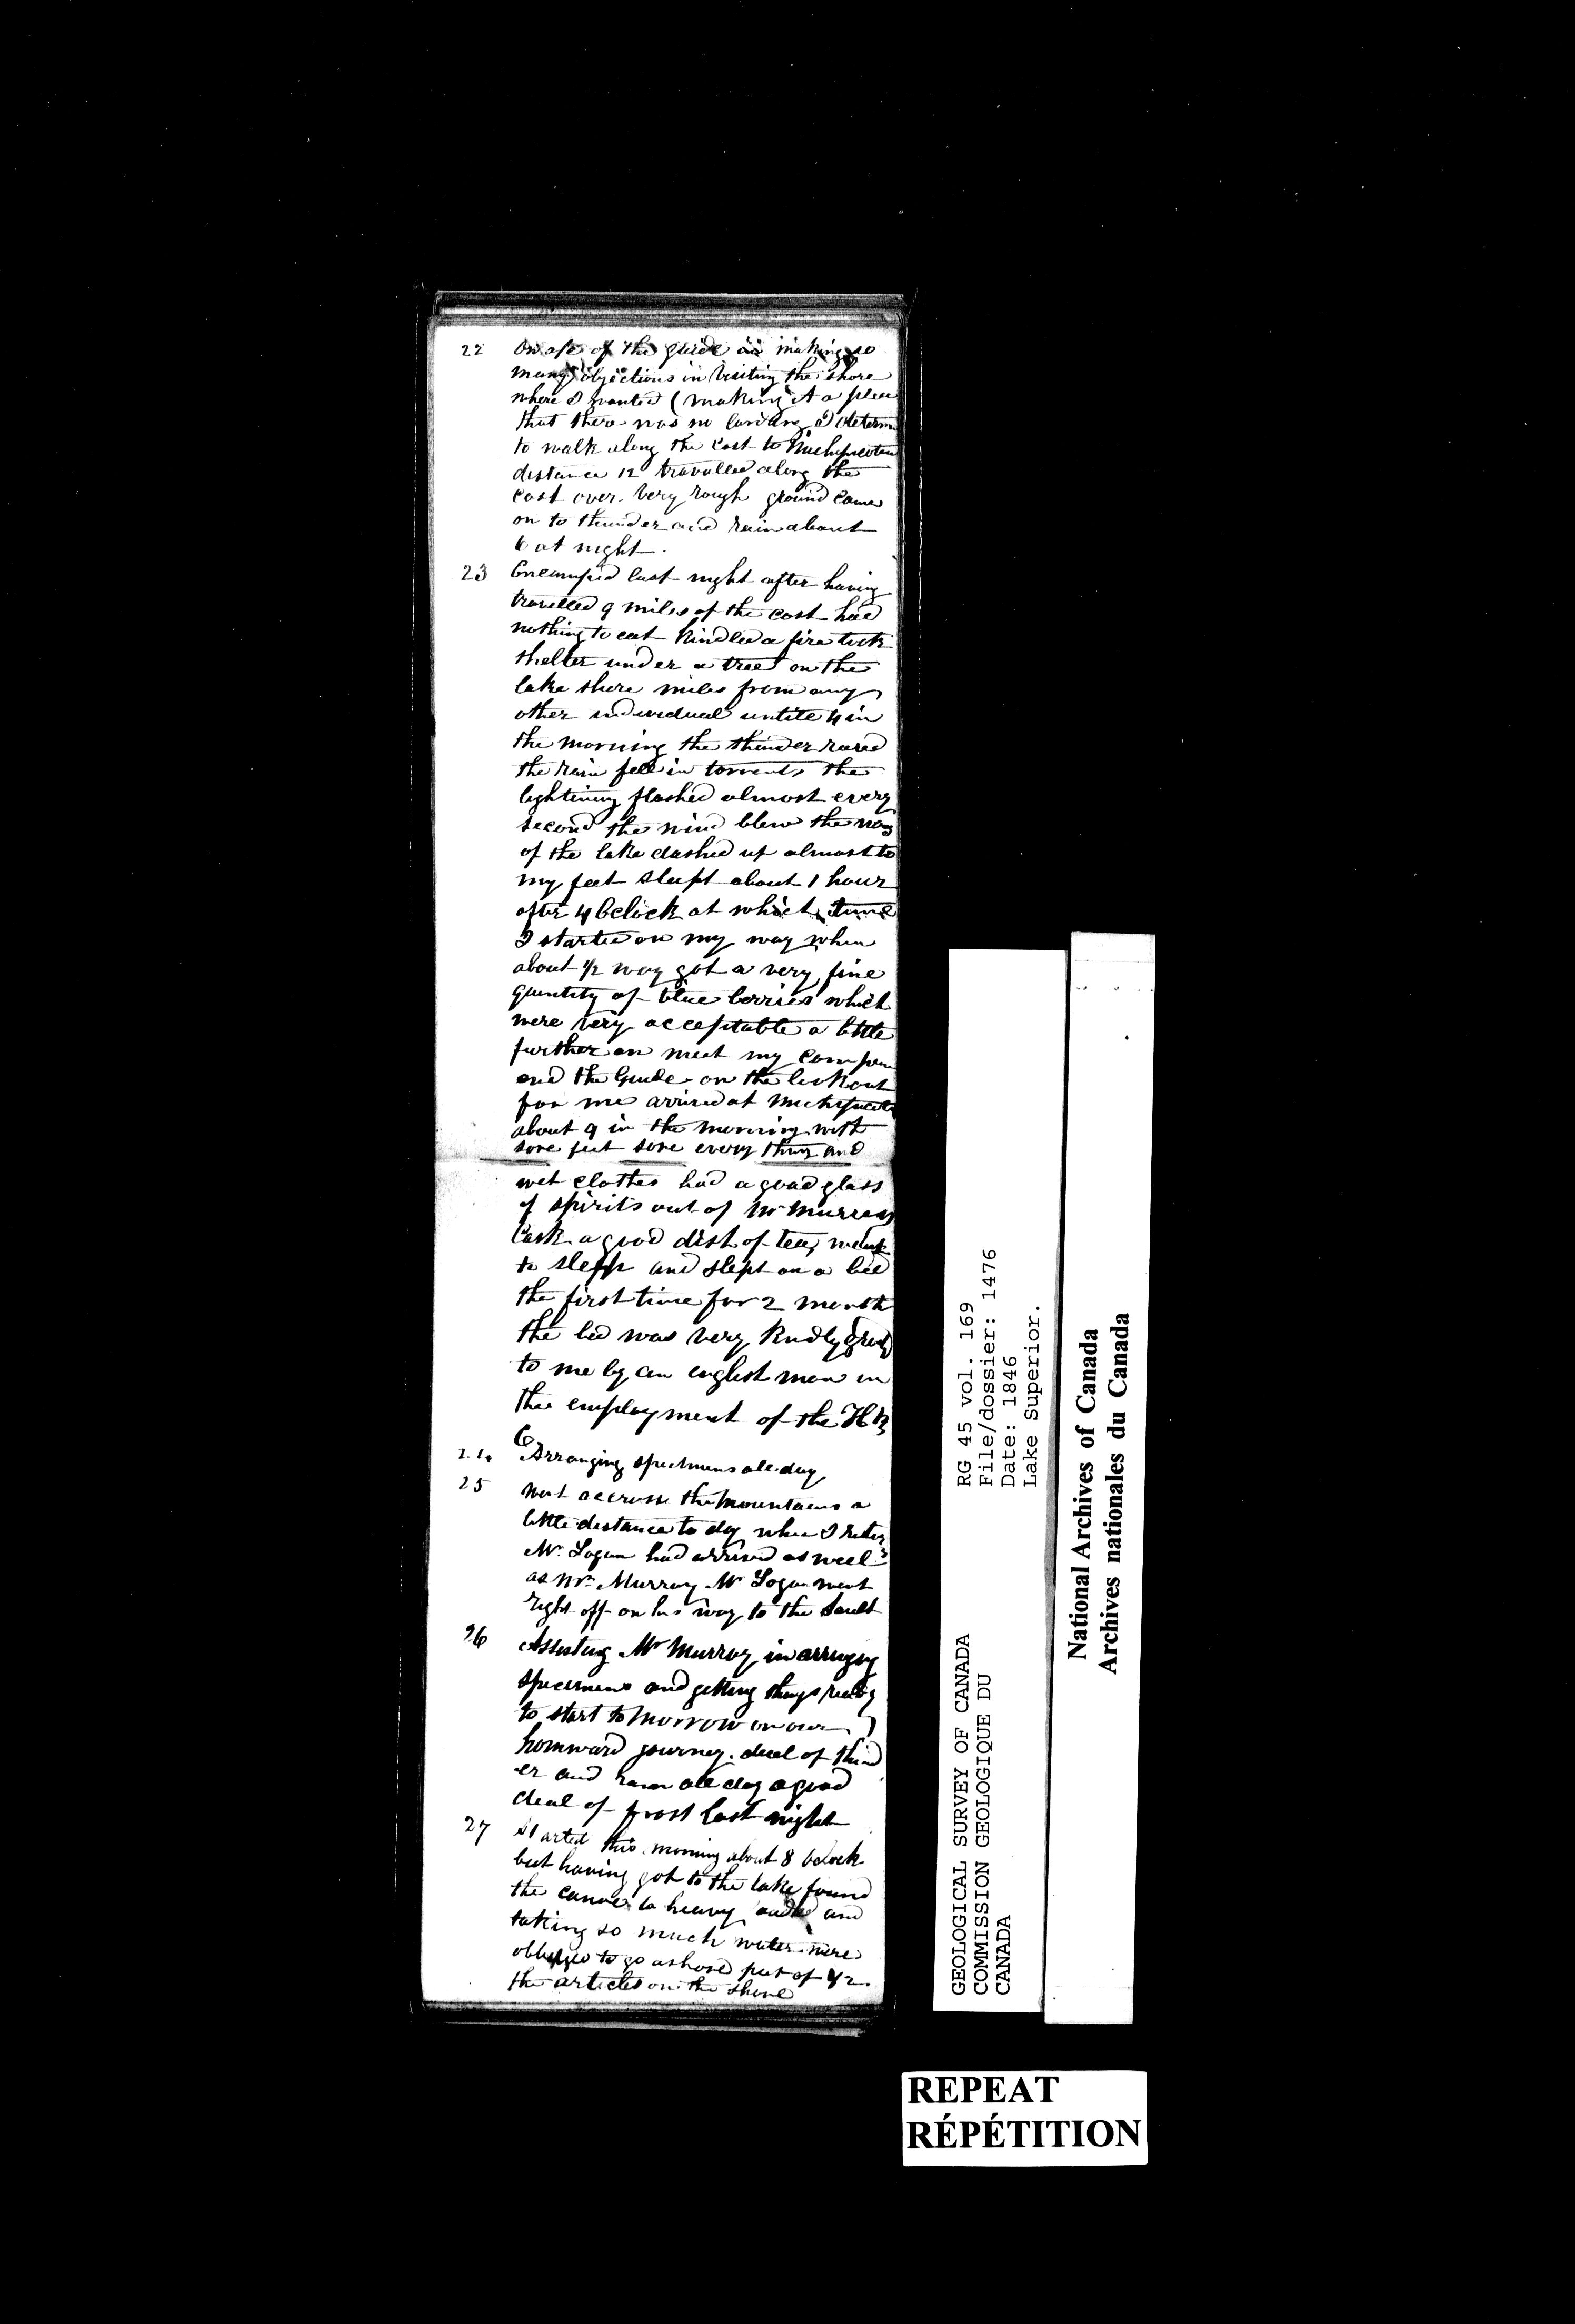 22 of the guide in making so
many objections in visiting the shore
where I wanted (making it a plea
that there was no landing I determ
to walk along the cost to
distance 12 travalled along the
cost over very rough ground came
on to thunder and rain about
6 at night
23 Encamped last night after having
travelled 9 miles of the cost had
nothing to eat kindled a fire took
shelter under a tree on the
lake shore miles from any
other individual untile 4 in
the morning the thunder roared
the rain fell in torrents the
lightining flashed almost every
second the wind blew the
of the lake dashed up almost to
my feet slept about 1 hour
after 4 oclock at which time
I started on my way when
about 1/2 way got a very fine
quantity of blue berries which
were very acceptable a little
further on meet my
and the Guide on the lookout
for me arrived at
about 9 in the morning with
sore feet sore every thing and
wet clothes had a good glass
of spirits out of Mr Murrays
Cask a good dish of tea,
to sleep and slept on a bed
the first time for 2 month
the bed was very kindly
to me by an english man in
the employment of the H B
C
24 Arranging specimens all day
25 Went accross the mountains a
little distance to day when I
Mr Logan had arrived as weel
as Mr Murray Mr Logan went
right off on his way to the Sault
26 Assisting Mr Murray in
specimens and getting things ready
to start to morrow on our
homward journey. deal of thund
er and rain all day a good
deal of frost last night
27 Started this morning about 8 oclock
but having got to the lake found
the canoe to heavy and
taking so much water were
obliged to go ashore put of 1/2
the articles on the shore
RG 45 vol. 169
File/dossier: 1476
Date: 1846
Lake Superior.
GEOLOGICAL SURVEY OF CANADA
COMMISSION GEOLOGIQUE DU
CANADA
National Archives of Canada
Archives nationales du Canada
REPEAT
RÉPÉTITION